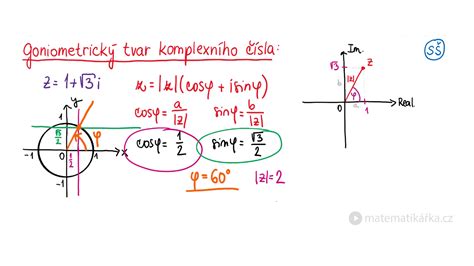 Goniometrický tvar komplexního čísla:
SŠ
z = 1 + √3 i
z = |z| (cosφ + i sinφ)
cosφ = a/|z| sinφ = b/|z|
cosφ = 1/2 sinφ = √3/2
φ = 60° |z| = 2
y
√3/2
φ
-1 0 1/2 1 x
1
-1
Im.
√3 z
b |z|
φ
0 a 1 Real
matematikářka.cz